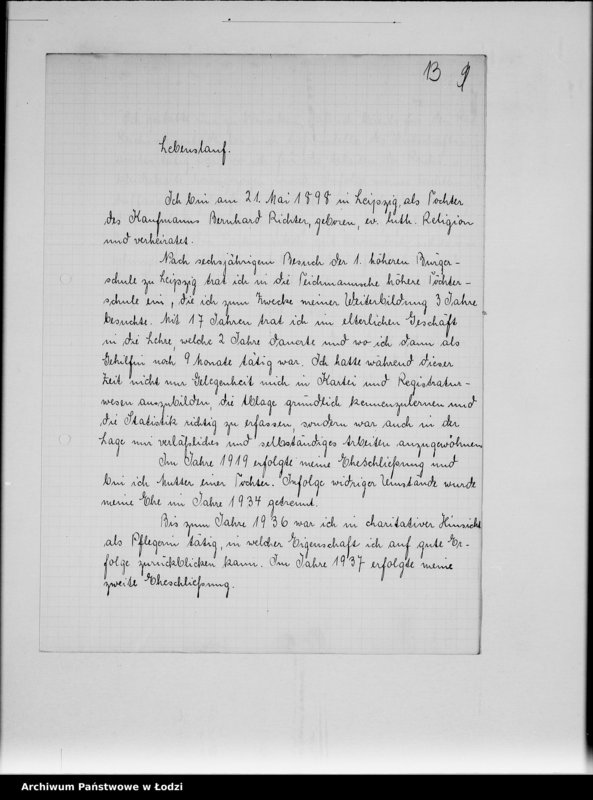 13 9
Lebenslauf.
Ich bin am 21. Mai 1898 in Leipzig, als Tochter
des Kaufmanns Bernhard Richter, geboren, ev. luth. Religion
und verheiratet.
Nach sechsjährigem Besuch der 1. höheren Bürger-
schule zu Leipzig trat ich in die Teichmannsche höhere Töchter-
schule ein, die ich zum Zwecke meiner Weiterbildung 3 Jahre
besuchte. Mit 17 Jahren trat ich im elterlichen Geschäft
in die Lehre, welche 2 Jahre dauerte und wo ich dann als
Gehilfin noch 9 Monate tätig war. Ich hatte während dieser
Zeit nicht nur Gelegenheit mich in Kartei und Registratur-
wesen auszubilden, die Ablage gründlich kennenzulernen und
die Statistik richtig zu erfassen, sondern war auch in der
Lage mir verläßliches und selbständiges Arbeiten anzugewöhnen
Im Jahre 1919 erfolgte meine Eheschließung und
bin ich Mutter einer Tochter. Infolge widriger Umstände wurde
meine Ehe im Jahre 1934 getrennt.
Bis zum Jahre 1936 war ich in charitativer Hinsicht
als Pflegerin tätig, in welcher Eigenschaft ich auf gute Er-
folge zurückblicken kann. Im Jahre 1937 erfolgte meine
zweite Eheschließung.
Archiwum Państwowe w Łodzi